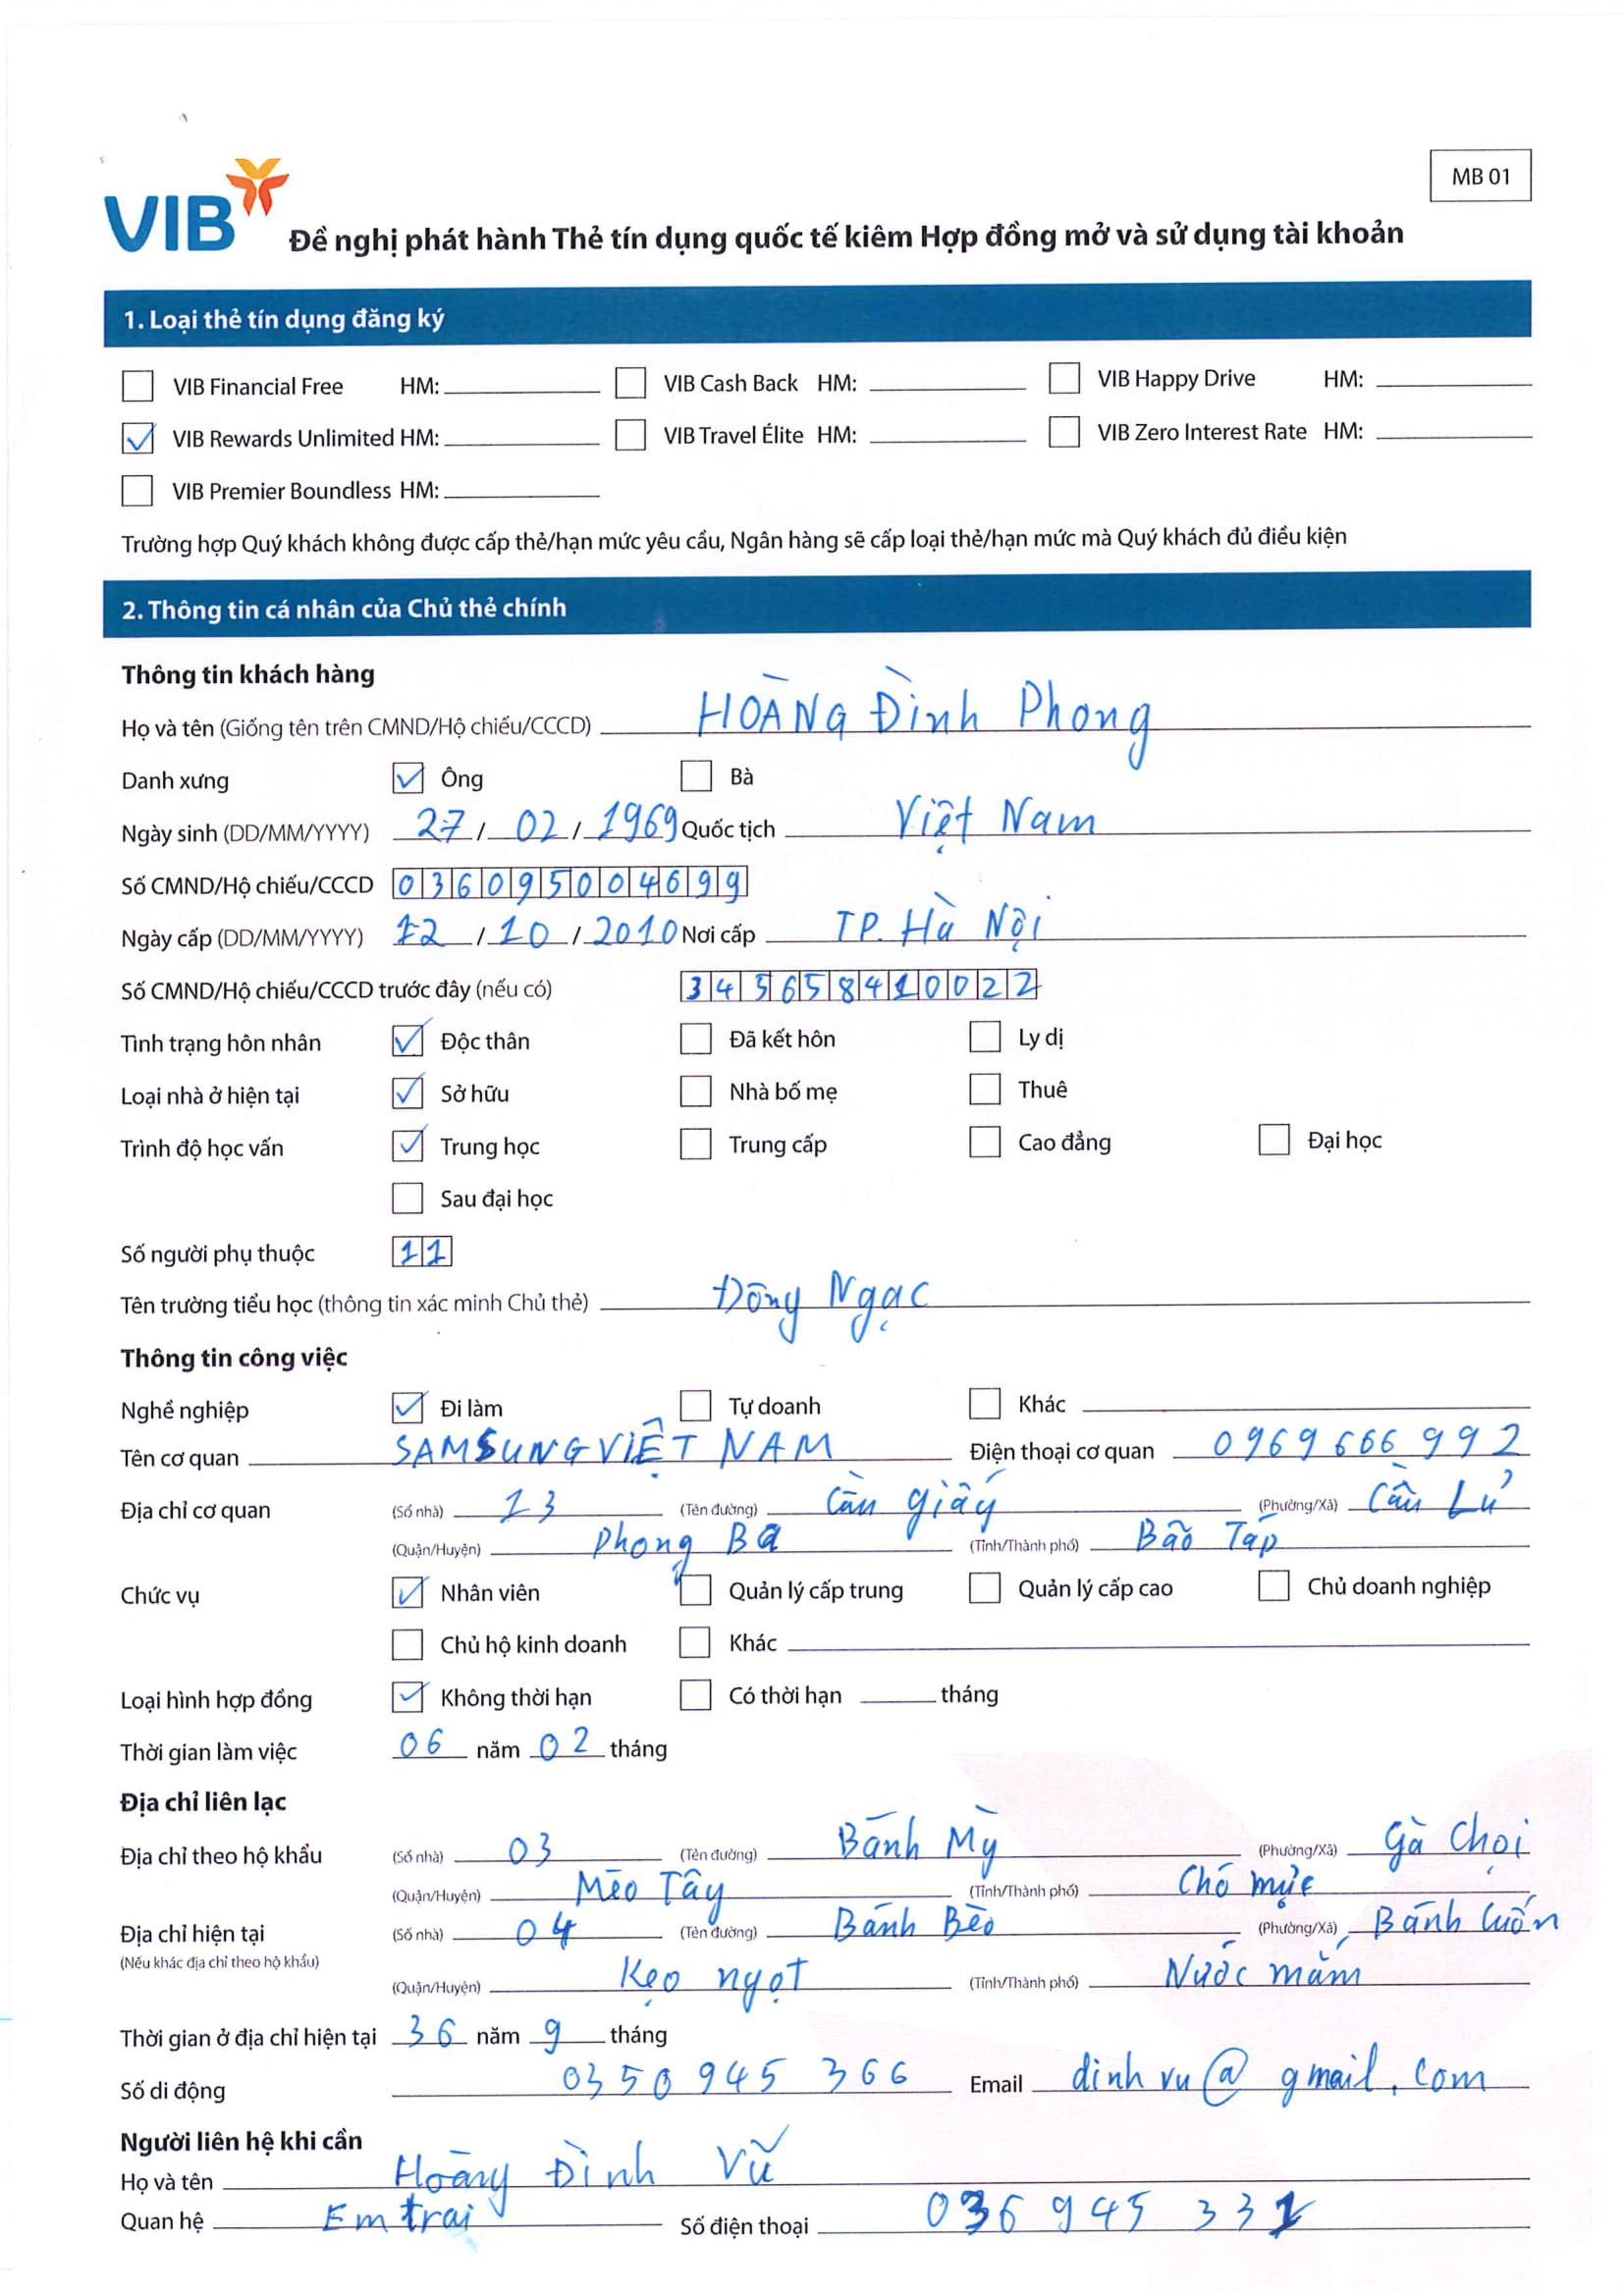 MB 01
VIB Đề nghị phát hành Thẻ tín dụng quốc tế kiêm Hợp đồng mở và sử dụng tài khoản
1. Loại thẻ tín dụng đăng ký
VIB Financial Free HM: VIB Cash Back HM: VIB Happy Drive HM:
VIB Rewards Unlimited HM: VIB Travel Élite HM: VIB Zero Interest Rate HM:
VIB Premier Boundless HM:
Trường hợp Quý khách không được cấp thẻ/hạn mức yêu cầu, Ngân hàng sẽ cấp loại thẻ/hạn mức mà Quý khách đủ điều kiện
2. Thông tin cá nhân của Chủ thẻ chính
Thông tin khách hàng
Họ và tên (Giống tên trên CMND/Hộ chiếu/CCCD) HOÀNG Đình Phong
Danh xưng Ông Bà
Ngày sinh (DD/MM/YYYY) 27 / 02 / 1969 Quốc tịch Việt Nam
Số CMND/Hộ chiếu/CCCD 036095004699
Ngày cấp (DD/MM/YYYY) 12 / 10 / 2010 Nơi cấp TP. Hà Nội
Số CMND/Hộ chiếu/CCCD trước đây (nếu có) 345658410022
Tình trạng hôn nhân Độc thân Đã kết hôn Ly dị
Loại nhà ở hiện tại Sở hữu Nhà bố mẹ Thuê
Trình độ học vấn Trung học Trung cấp Cao đẳng Đại học
Sau đại học
Số người phụ thuộc 11
Tên trường tiểu học (thông tin xác minh Chủ thẻ) Đông Ngạc
Thông tin công việc
Nghề nghiệp Đi làm Tự doanh Khác
Tên cơ quan SAMSUNG VIỆT NAM Điện thoại cơ quan 0969666992
Địa chỉ cơ quan (Số nhà) 13 (Tên đường) Cần giấy (Phường/Xã) Cầu Lử
(Quận/Huyện) Phong Ba (Tỉnh/Thành phố) Bão Táp
Chức vụ Nhân viên Quản lý cấp trung Quản lý cấp cao Chủ doanh nghiệp
Chủ hộ kinh doanh Khác
Loại hình hợp đồng Không thời hạn Có thời hạn tháng
Thời gian làm việc 06 năm 02 tháng
Địa chỉ liên lạc
Địa chỉ theo hộ khẩu (Số nhà) 03 (Tên đường) Bánh Mỳ (Phường/Xã) Gà Chọi
(Quận/Huyện) Mèo Tây (Tỉnh/Thành phố) Chó mực
Địa chỉ hiện tại (Số nhà) 04 (Tên đường) Bánh Bèo (Phường/Xã) Bánh Cuốn
(Nếu khác địa chỉ theo hộ khẩu)
(Quận/Huyện) Kẹo ngọt (Tỉnh/Thành phố) Nước mắm
Thời gian ở địa chỉ hiện tại 36 năm 9 tháng
Số di động 0350 945 366 Email dinhvu@gmail.com
Người liên hệ khi cần
Họ và tên Hoàng Đình Vũ
Quan hệ Em trai Số điện thoại 036 945 331